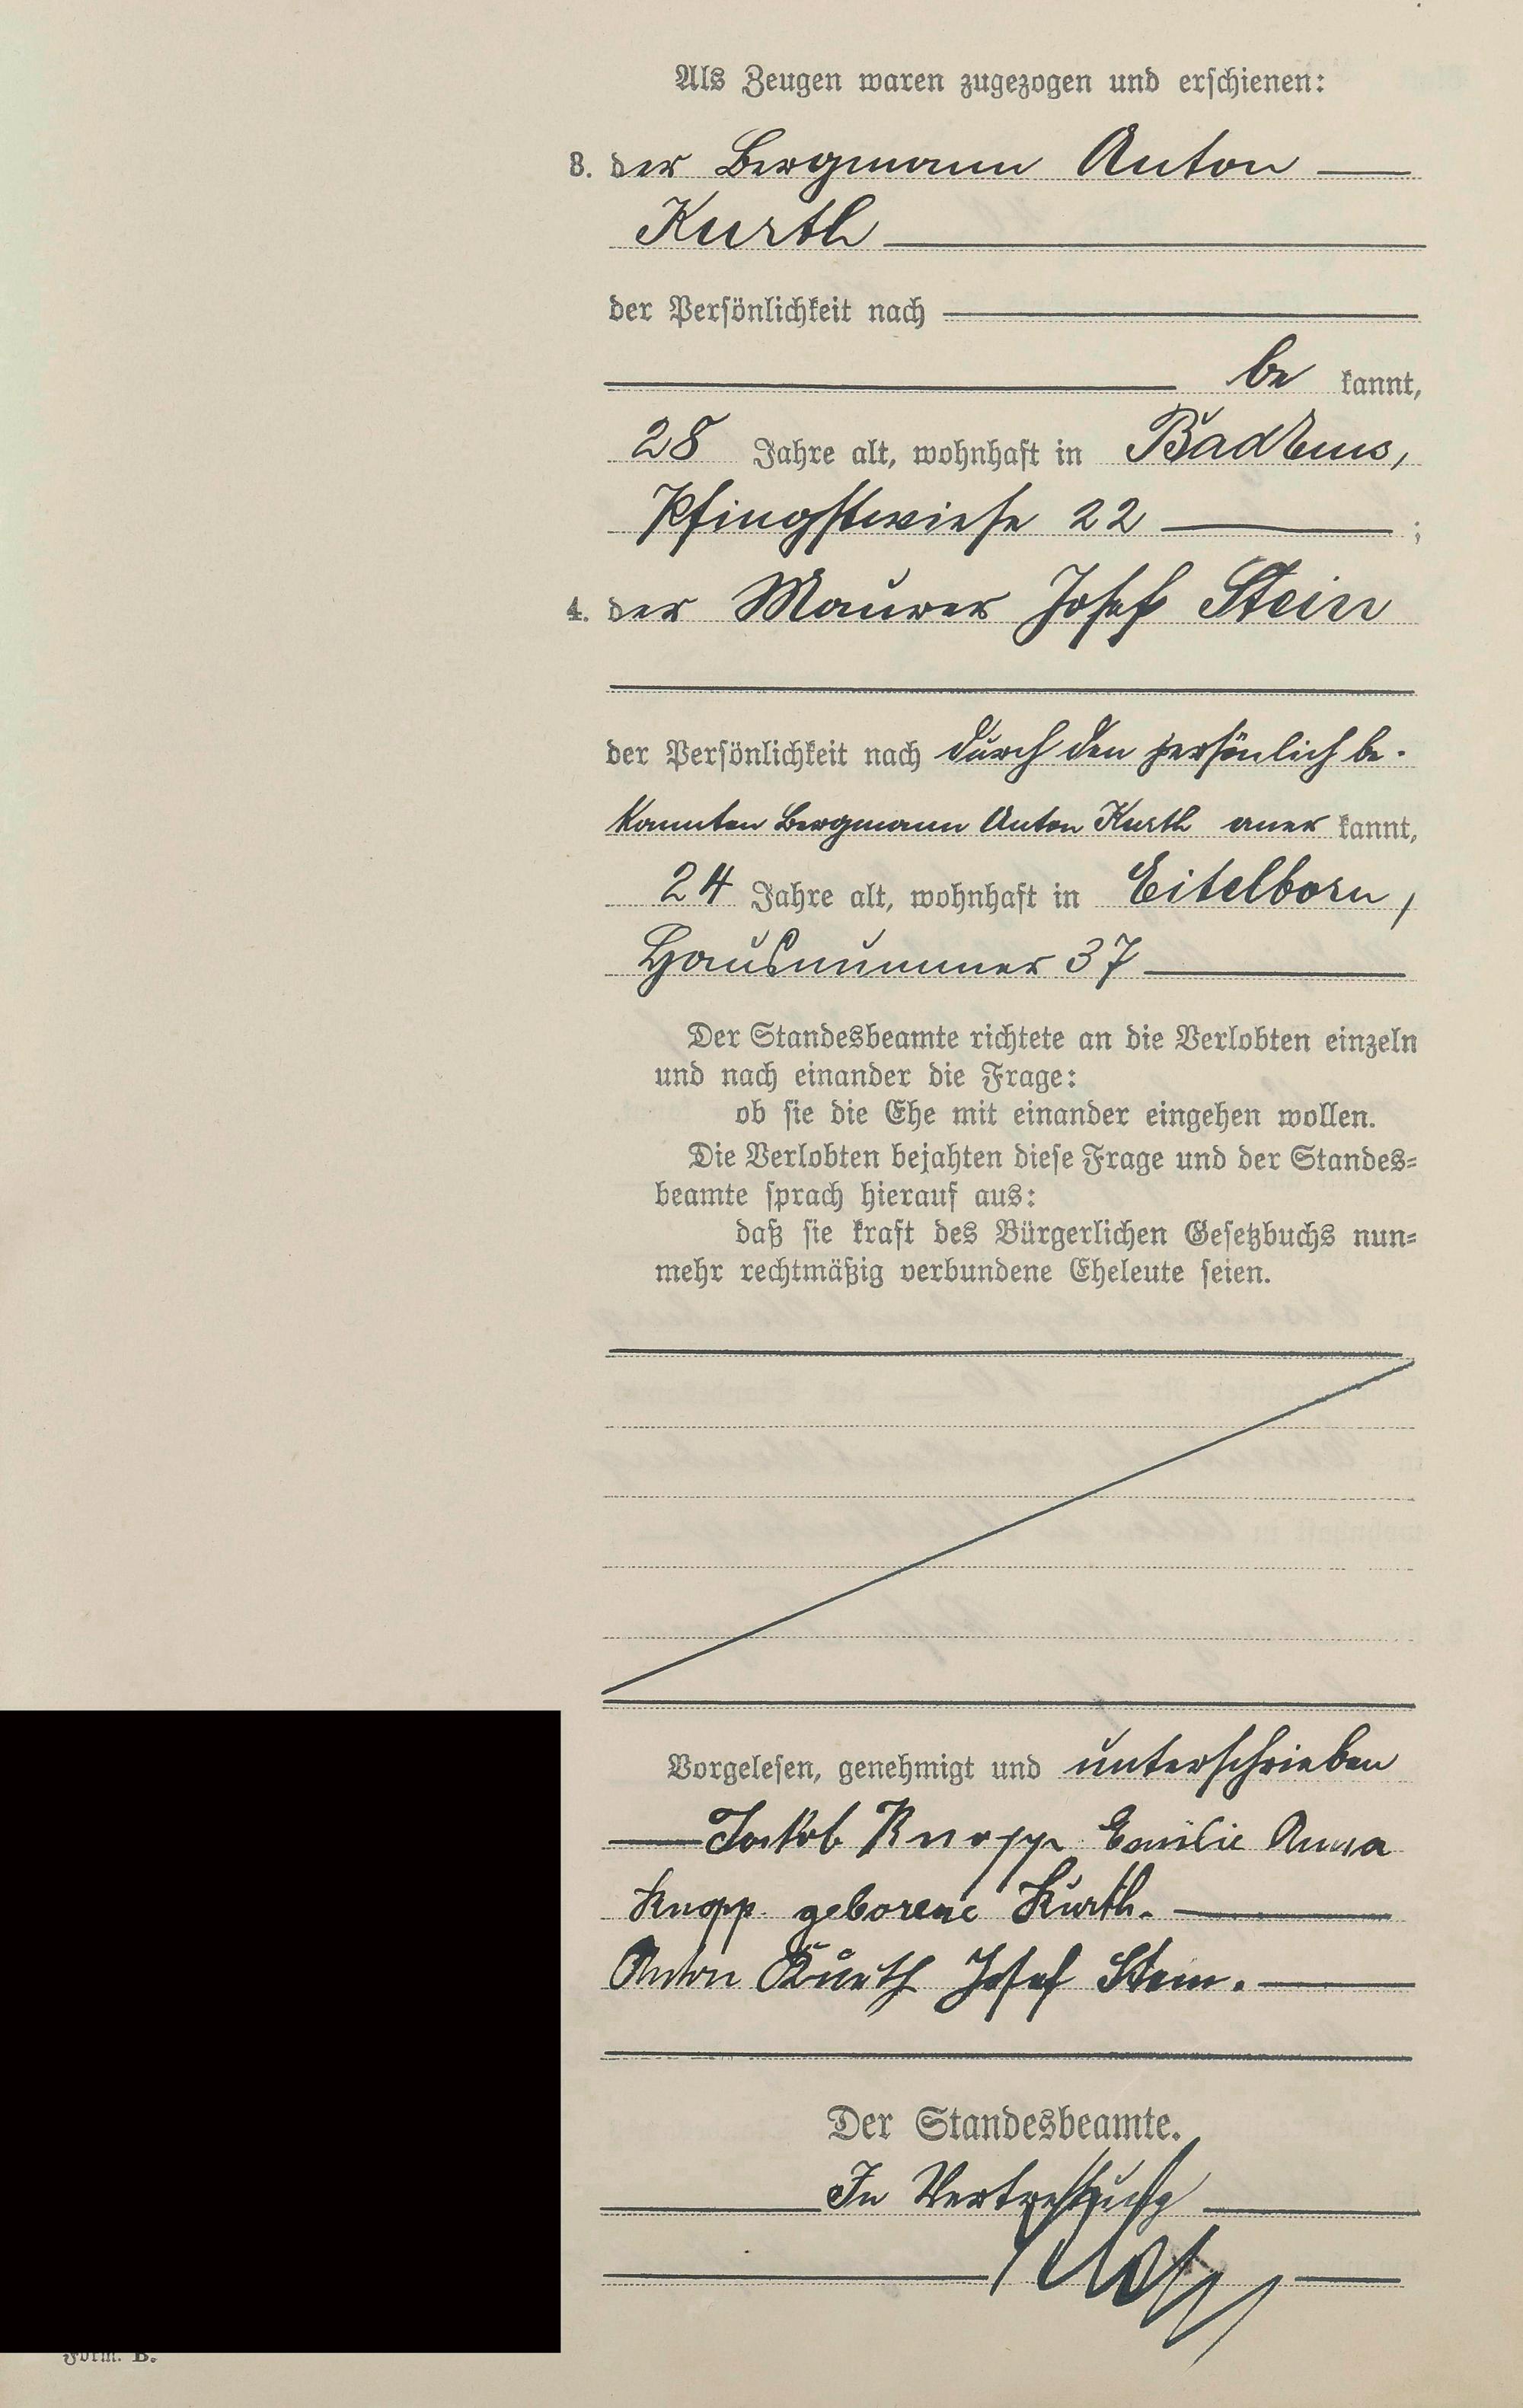 Als Zeugen waren zugezogen und erschienen:
3. der Bergmann Anton
Kurth
der Persönlichkeit nach
be kannt,
28 Jahre alt, wohnhaft in Bad Ems,
Pfingstwiese 22 ;
4. der Maurer Josef Stein
der Persönlichkeit nach durch den persönlich be-
kannten Bergmann Anton Kurth aner kannt,
24 Jahre alt, wohnhaft in Eitelborn,
Hausnummer 37
Der Standesbeamte richtete an die Verlobten einzeln
und nach einander die Frage:
ob sie die Ehe mit einander eingehen wollen.
Die Verlobten bejahten diese Frage und der Standes-
beamte sprach hierauf aus:
daß sie kraft des Bürgerlichen Gesetzbuchs nun-
mehr rechtmäßig verbundene Eheleute seien.
Vorgelesen, genehmigt und unterschrieben
Jakob Knopp Emilie Anna
Knopp geborene Kurth.
Anton Kurth Josef Stein.
Der Standesbeamte.
In Vertretung
Form. B.